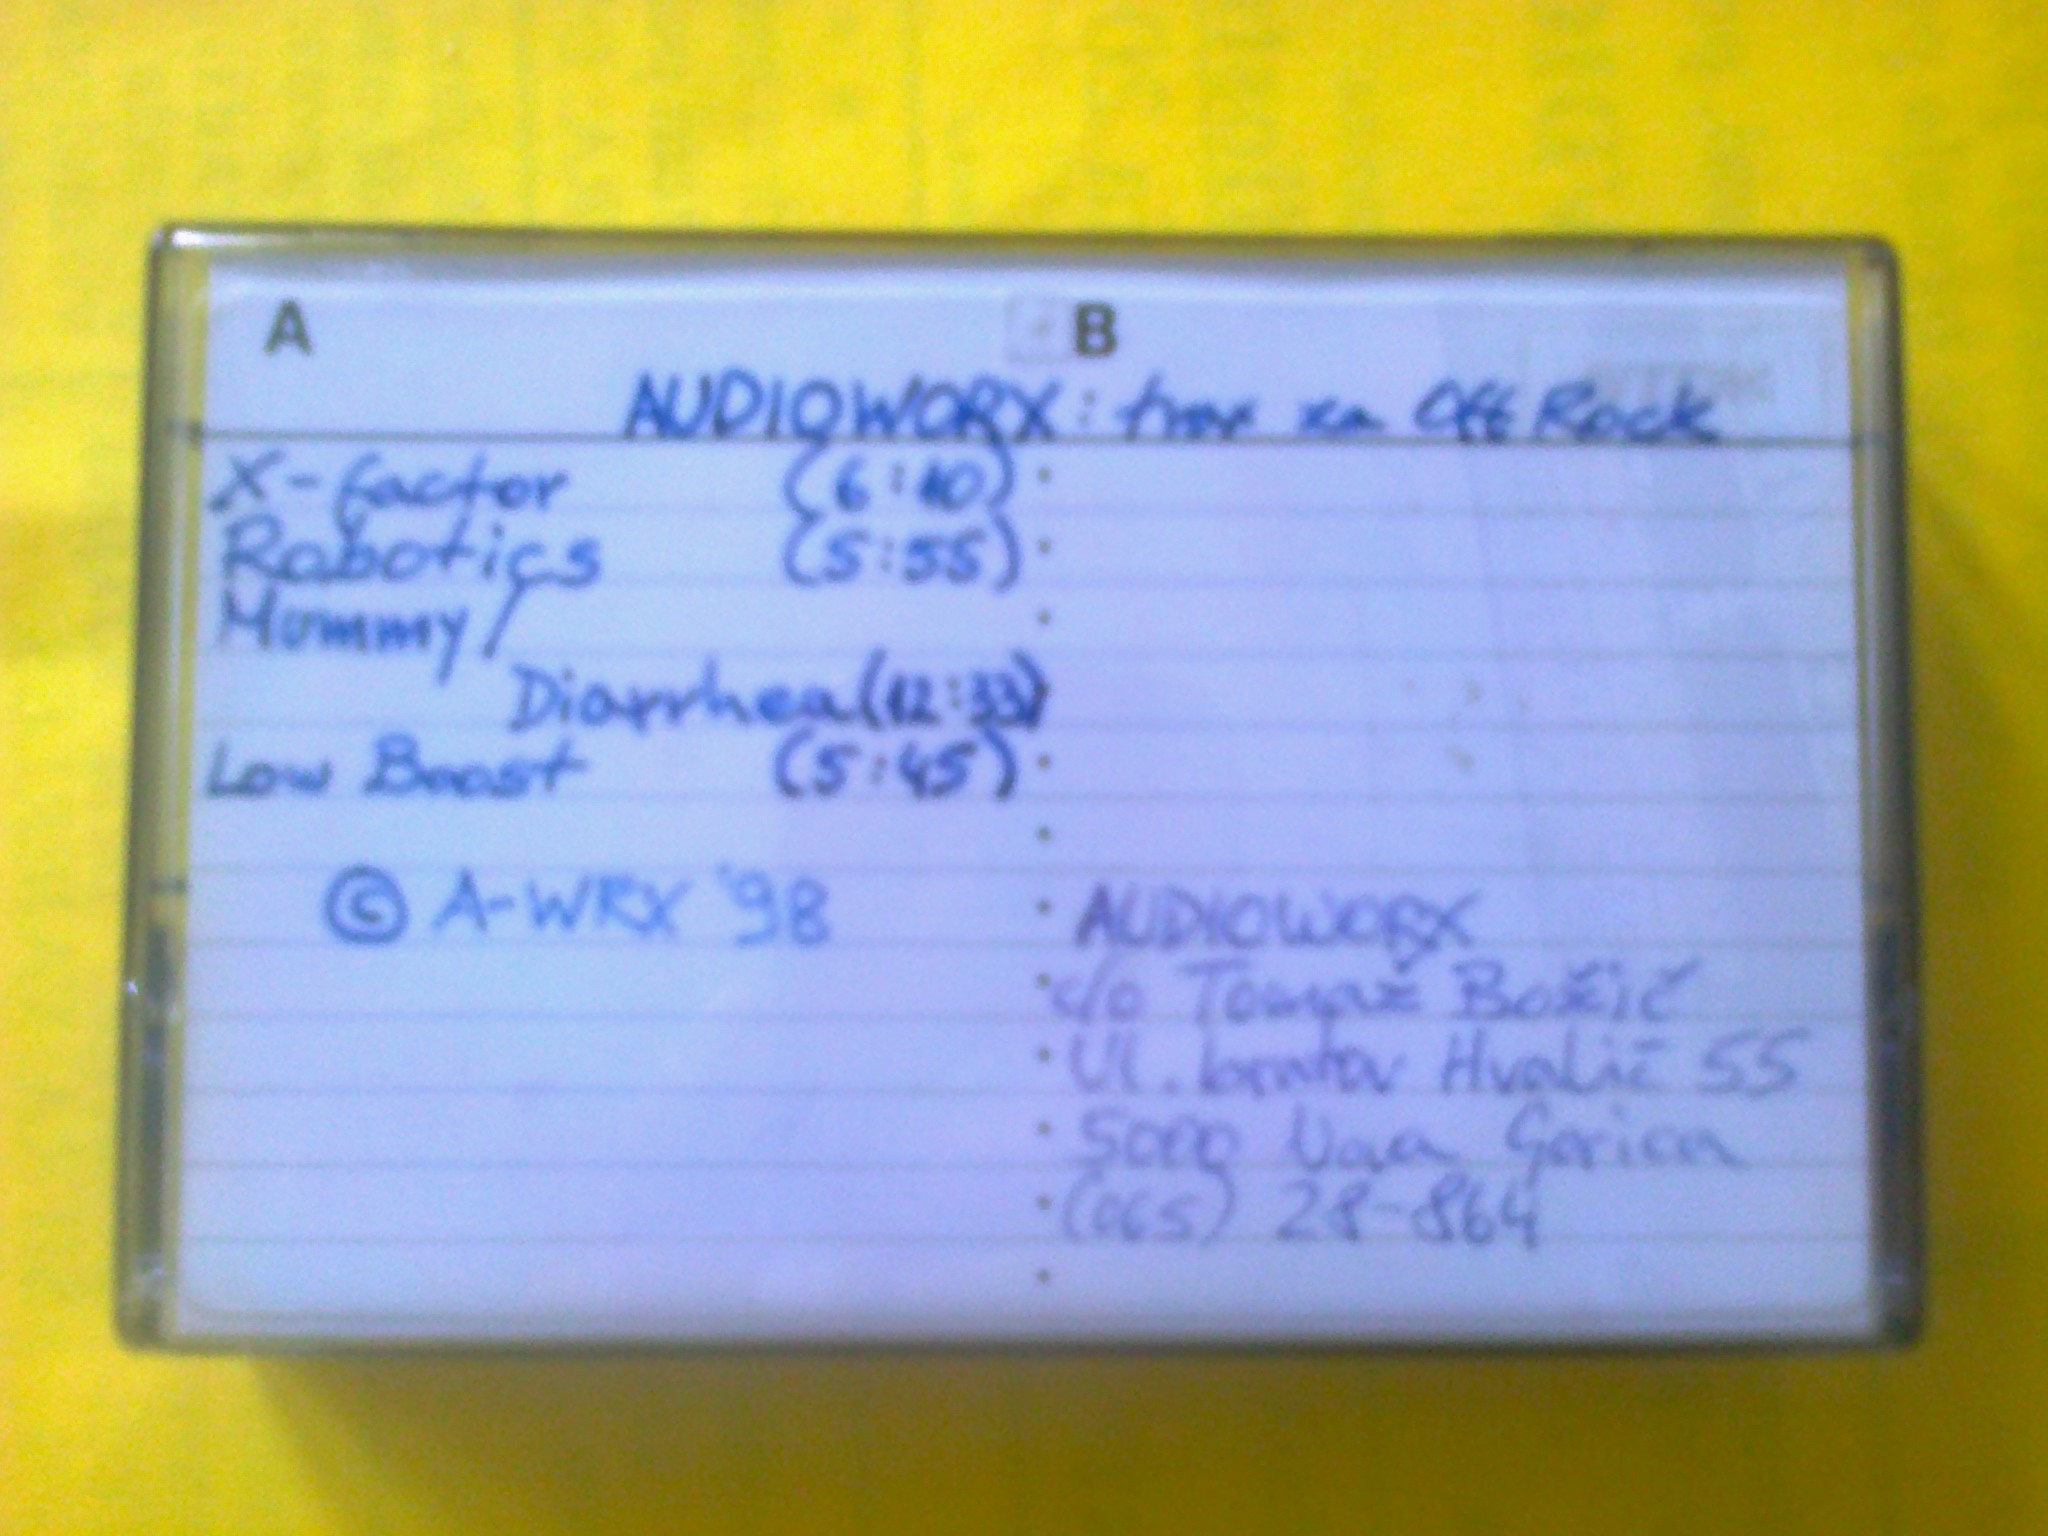 A B
AUDIOWORX: za Off Rock
X-factor (6:10)
Robotics (5:55)
Mummy/
Diarrhea (12:33)
Low Boost (5:45)
© A-WRX '98
AUDIOWORX
c/o Tomaž Božič
Ul. bratov Hvalič 55
5000 Nova Gorica
(065) 28-864